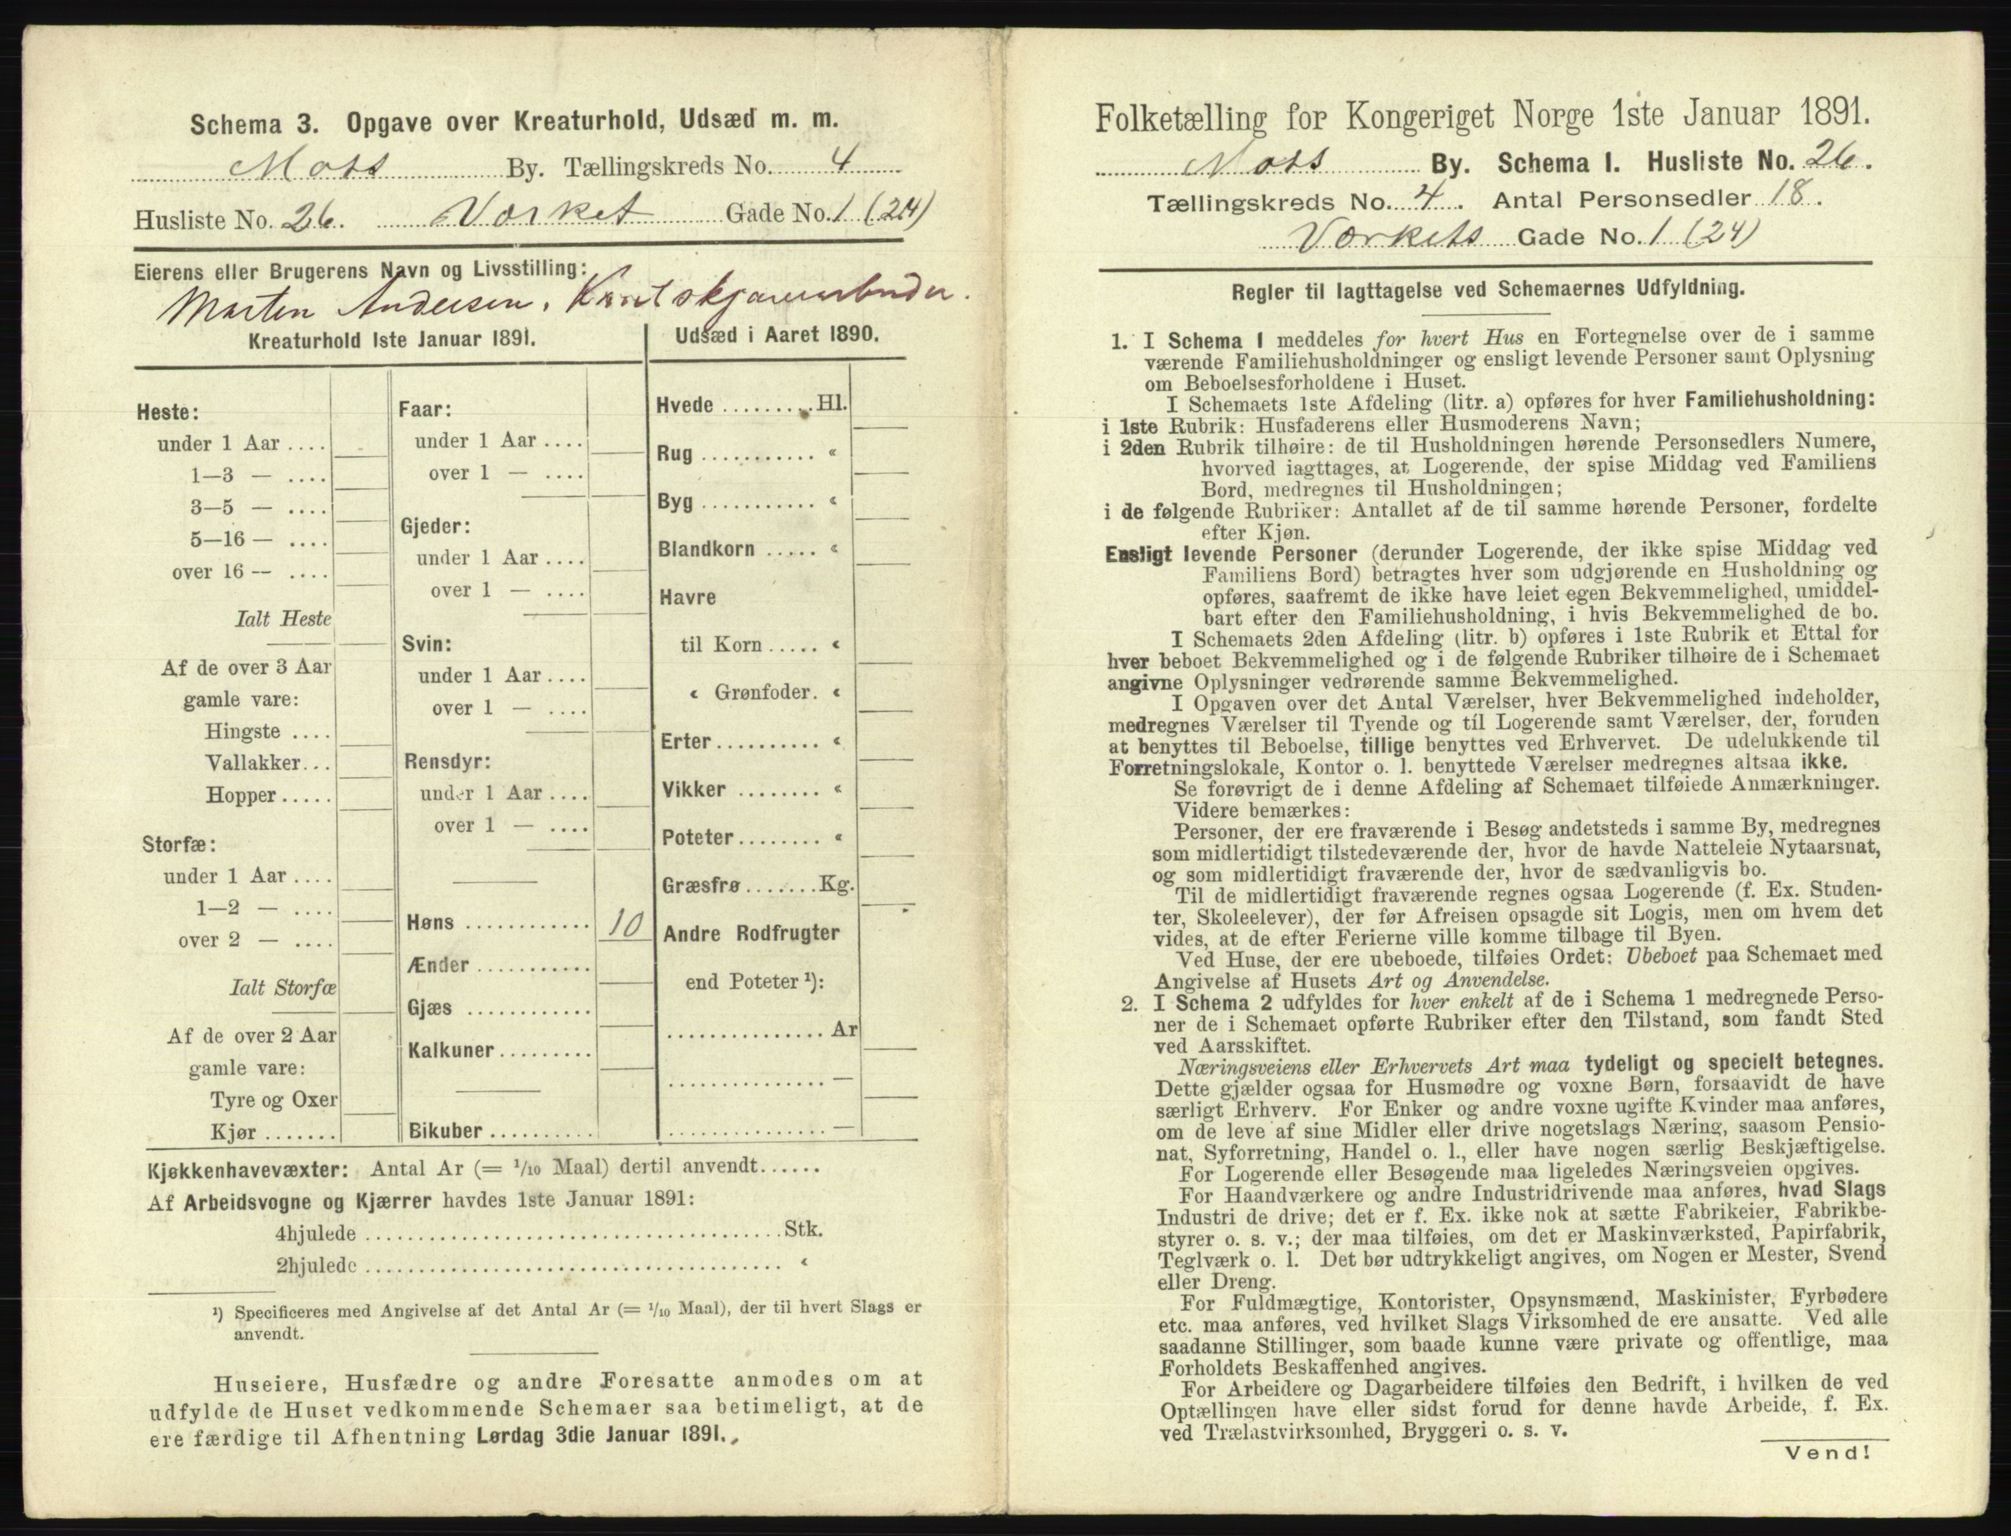 Schema 3. Opgave over Kreaturhold, Udsæd m. m.
Moss By. Tællingskreds No. 4
Husliste No. 26. Værket Gade No. 1 (24)
Eierens eller Brugerens Navn og Livsstilling:
Marten Andersen,
Kreaturhold 1ste Januar 1891.
Heste:
under 1 Aar ....
1—3 — ....
3—5 — ....
5—16 — ....
over 16 — ....
Ialt Heste
Af de over 3 Aar
gamle vare:
Hingste ....
Vallakker...
Hopper.....
Storfæ:
under 1 Aar ....
1—2 — ....
over 2 — ....
Ialt Storfæ
Af de over 2 Aar
gamle vare:
Tyre og Oxer
Kjør .......
Faar:
under 1 Aar ....
over 1 — ....
Gjeder:
under 1 Aar ....
over 1 — ....
Svin:
under 1 Aar ....
over 1 — ....
Rensdyr:
under 1 Aar ....
over 1 — ....
Høns ............ 10
Ænder ...........
Gjæs ............
Kalkuner.........
Bikuber ..........
Udsæd i Aaret 1890.
Hvede .........Hl.
Rug ........... «
Byg ........... «
Blandkorn ..... «
Havre
til Korn ..... «
« Grønfoder. «
Erter.......... «
Vikker ........ «
Poteter........ «
Græsfrø .......Kg.
Andre Rodfrugter
end Poteter ¹):
............... Ar
............... —
............... —
Kjøkkenhavevæxter: Antal Ar (= 1/10 Maal) dertil anvendt......
Af Arbeidsvogne og Kjærrer havdes 1ste Januar 1891:
4hjulede .......................................Stk.
2hjulede ....................................... «
¹) Specificeres med Angivelse af det Antal Ar (= 1/10 Maal), der til hvert Slags er
anvendt.
Huseiere, Husfædre og andre Foresatte anmodes om at
udfylde de Huset vedkommende Schemaer saa betimeligt, at de
ere færdige til Afhentning Lørdag 3die Januar 1891.
Folketælling for Kongeriget Norge 1ste Januar 1891.
Moss By. Schema 1. Husliste No. 26.
Tællingskreds No. 4. Antal Personsedler 18.
Værkets Gade No. 1 (24)
Regler til Iagttagelse ved Schemaernes Udfyldning.
1. I Schema 1 meddeles for hvert Hus en Fortegnelse over de i samme
værende Familiehusholdninger og ensligt levende Personer samt Oplysning
om Beboelsesforholdene i Huset.
I Schemaets 1ste Afdeling (litr. a) opføres for hver Familiehusholdning:
i 1ste Rubrik: Husfaderens eller Husmoderens Navn;
i 2den Rubrik tilhøire: de til Husholdningen hørende Personsedlers Numere,
hvorved iagttages, at Logerende, der spise Middag ved Familiens
Bord, medregnes til Husholdningen;
i de følgende Rubriker: Antallet af de til samme hørende Personer, fordelte
efter Kjøn.
Ensligt levende Personer (derunder Logerende, der ikke spise Middag ved
Familiens Bord) betragtes hver som udgjørende en Husholdning og
opføres, saafremt de ikke have leiet egen Bekvemmelighed, umiddel-
bart efter den Familiehusholdning, i hvis Bekvemmelighed de bo.
I Schemaets 2den Afdeling (litr. b) opføres i 1ste Rubrik et Ettal for
hver beboet Bekvemmelighed og i de følgende Rubriker tilhøire de i Schemaet
angivne Oplysninger vedrørende samme Bekvemmelighed.
I Opgaven over det Antal Værelser, hver Bekvemmelighed indeholder,
medregnes Værelser til Tyende og til Logerende samt Værelser, der, foruden
at benyttes til Beboelse, tillige benyttes ved Erhvervet. De udelukkende til
Forretningslokale, Kontor o. l. benyttede Værelser medregnes altsaa ikke.
Se forøvrigt de i denne Afdeling af Schemaet tilføiede Anmærkninger.
Videre bemærkes:
Personer, der ere fraværende i Besøg andetsteds i samme By, medregnes
som midlertidigt tilstedeværende der, hvor de havde Natteleie Nytaarsnat,
og som midlertidigt fraværende der, hvor de sædvanligvis bo.
Til de midlertidigt fraværende regnes ogsaa Logerende (f. Ex. Studen-
ter, Skoleelever), der før Afreisen opsagde sit Logis, men om hvem det
vides, at de efter Ferierne ville komme tilbage til Byen.
Ved Huse, der ere ubeboede, tilføies Ordet: Ubeboet paa Schemaet med
Angivelse af Husets Art og Anvendelse.
2. I Schema 2 udfyldes for hver enkelt af de i Schema 1 medregnede Perso-
ner de i Schemaet opførte Rubriker efter den Tilstand, som fandt Sted
ved Aarsskiftet.
Næringsveiens eller Erhvervets Art maa tydeligt og specielt betegnes.
Dette gjælder ogsaa for Husmødre og voxne Børn, forsaavidt de have
særligt Erhverv. For Enker og andre voxne ugifte Kvinder maa anføres,
om de leve af sine Midler eller drive nogetslags Næring, saasom Pensio-
nat, Syforretning, Handel o. l., eller have nogen særlig Beskjæftigelse.
For Logerende eller Besøgende maa ligeledes Næringsveien opgives.
For Haandværkere og andre Industridrivende maa anføres, hvad Slags
Industri de drive; det er f. Ex. ikke nok at sætte Fabrikeier, Fabrikbe-
styrer o. s. v.; der maa tilføies, om det er Maskinværksted, Papirfabrik,
Teglværk o. l. Det bør udtrykkeligt angives, om Nogen er Mester, Svend
eller Dreng.
For Fuldmægtige, Kontorister, Opsynsmænd, Maskinister, Fyrbødere
etc. maa anføres, ved hvilket Slags Virksomhed de ere ansatte. Ved alle
saadanne Stillinger, som baade kunne være private og offentlige, maa
Forholdets Beskaffenhed angives.
For Arbeidere og Dagarbeidere tilføies den Bedrift, i hvilken de ved
Optællingen have eller sidst forud for denne havde Arbeide, f. Ex.
ved Trælastvirksomhed, Bryggeri o. s. v.
Vend!